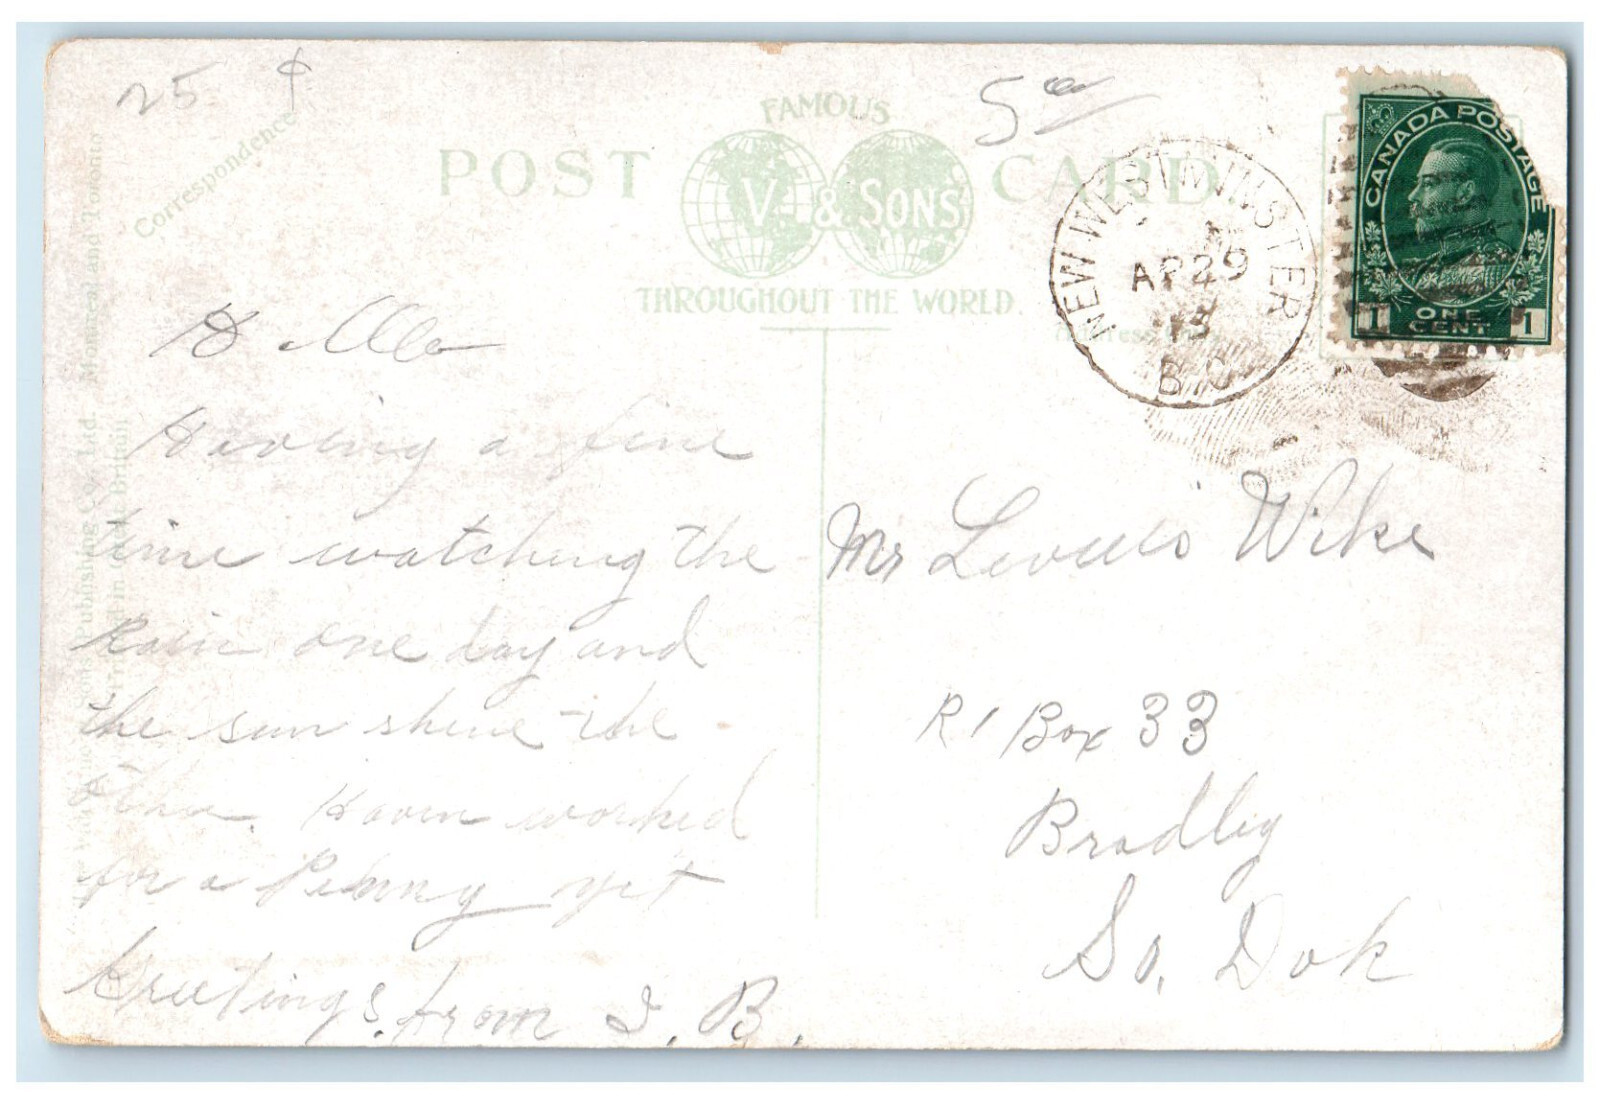 25 ¢
5
Correspondence
FAMOUS
POST CARD
V & SONS
THROUGHOUT THE WORLD.
NEW WESTMINSTER
AP 29
13
B.C.
CANADA POSTAGE
1 ONE CENT 1
Having a fine
time watching the
Rain one day and
the sun shine the
other. Haven worked
for a Penny yet
Greetings from I. B.
Mr Wike
R 1 Box 33
Bradley
So. Dak
Publishing Co. Ltd. Montreal and Toronto
Printed in Great Britain